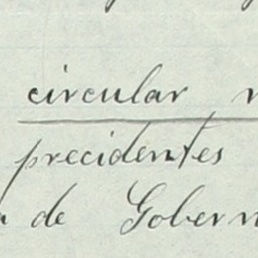 circular
precidentes
de Gobern